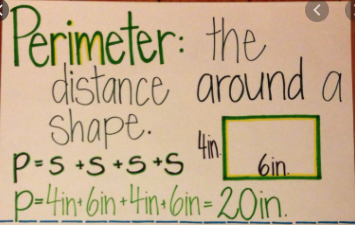 Perimeter: the
distance around a
shape.
4in.
6in.
P=S+S+S+S
P=4in+6in+4in+6in=20in.